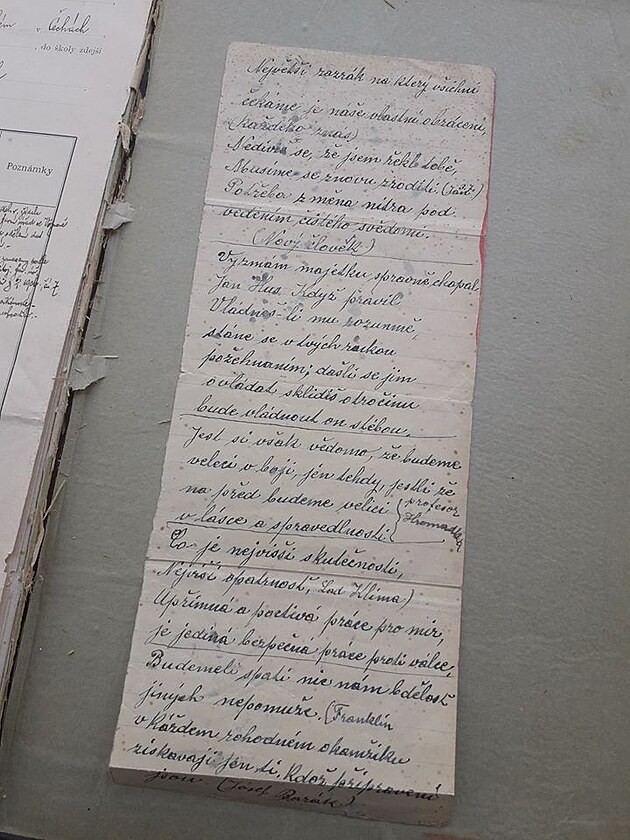 v Čechách
do školy zdejší
Poznámky
Největší zazrák na který všichni
čekáme je naše vlastní obrácení,
(každého z nás)
Nediv se, že jsem řekl tobě,
Musíme se znovu zroditi. (Ježíš)
Potřeba změna nitra pod
vedením čistého svědomí.
(Nový člověk)
Vyznám majetku spravně chopal
Jan Hus. Když pravil
Vládneš-li mu rozumně,
stane se v tvých rukou
požehnaním; dašli se jim
ovládat sklidíš otročinu
bude vládnout on s tebou.
Jest si však vědomo, že budeme
velcí v boji, jen tehdy, jestli že
na před budeme velicí (profesor
v lásce a spravedlnosti. Hromadka)
Co je nejvišší skutečností,
Nejvišší opatrnost, Lad Klíma)
Upřimná a poctivá práce pro mír,
je jediná bezpečná práce proti válce,
Budemeli spati nic nám bdělost
jiných nepomuže. (Franklin
v každem rohodném okamžiku
ziskavají jen ti, kdož připraveni
jsou (Josef Barák)